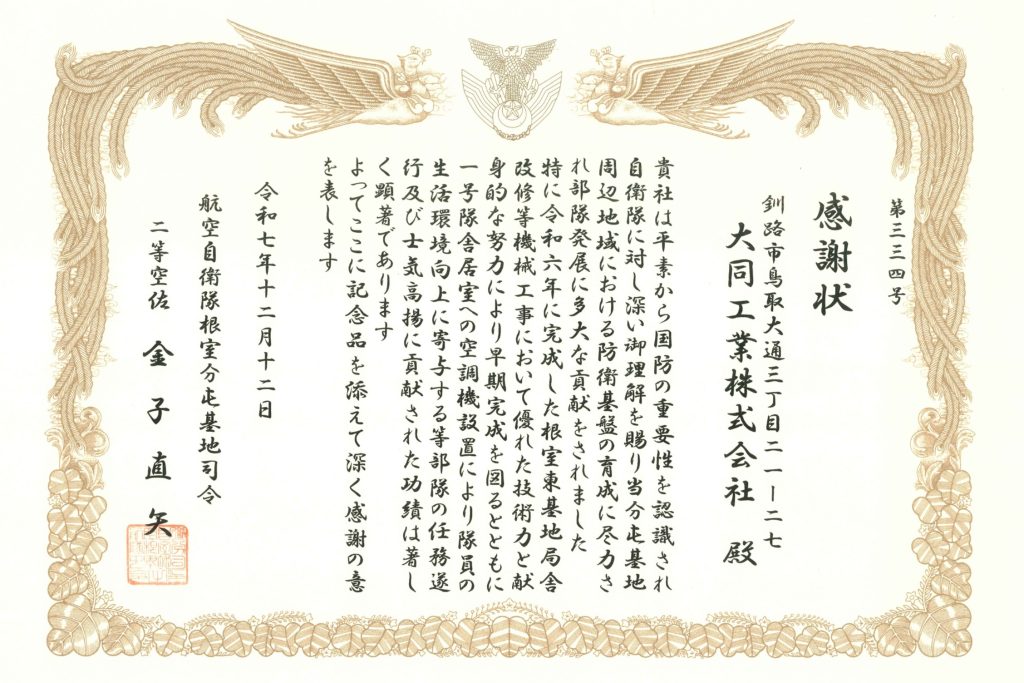 第三三四号
感謝状
釧路市鳥取大通三丁目二一ー二七
大同工業株式会社 殿
貴社は平素から国防の重要性を認識され
自衛隊に対し深い御理解を賜り当分屯基地
周辺地域における防衛基盤の育成に尽力さ
れ部隊発展に多大な貢献をされました
特に令和六年に完成した根室東基地局舎
改修等機械工事において優れた技術力と献
身的な努力により早期完成を図るとともに
一号隊舎居室への空調機設置により隊員の
生活環境向上に寄与する等部隊の任務遂
行及び士気高揚に貢献された功績は著し
く顕著であります
よってここに記念品を添えて深く感謝の意
を表します
令和七年十二月十二日
航空自衛隊根室分屯基地司令
二等空佐 金子直矢